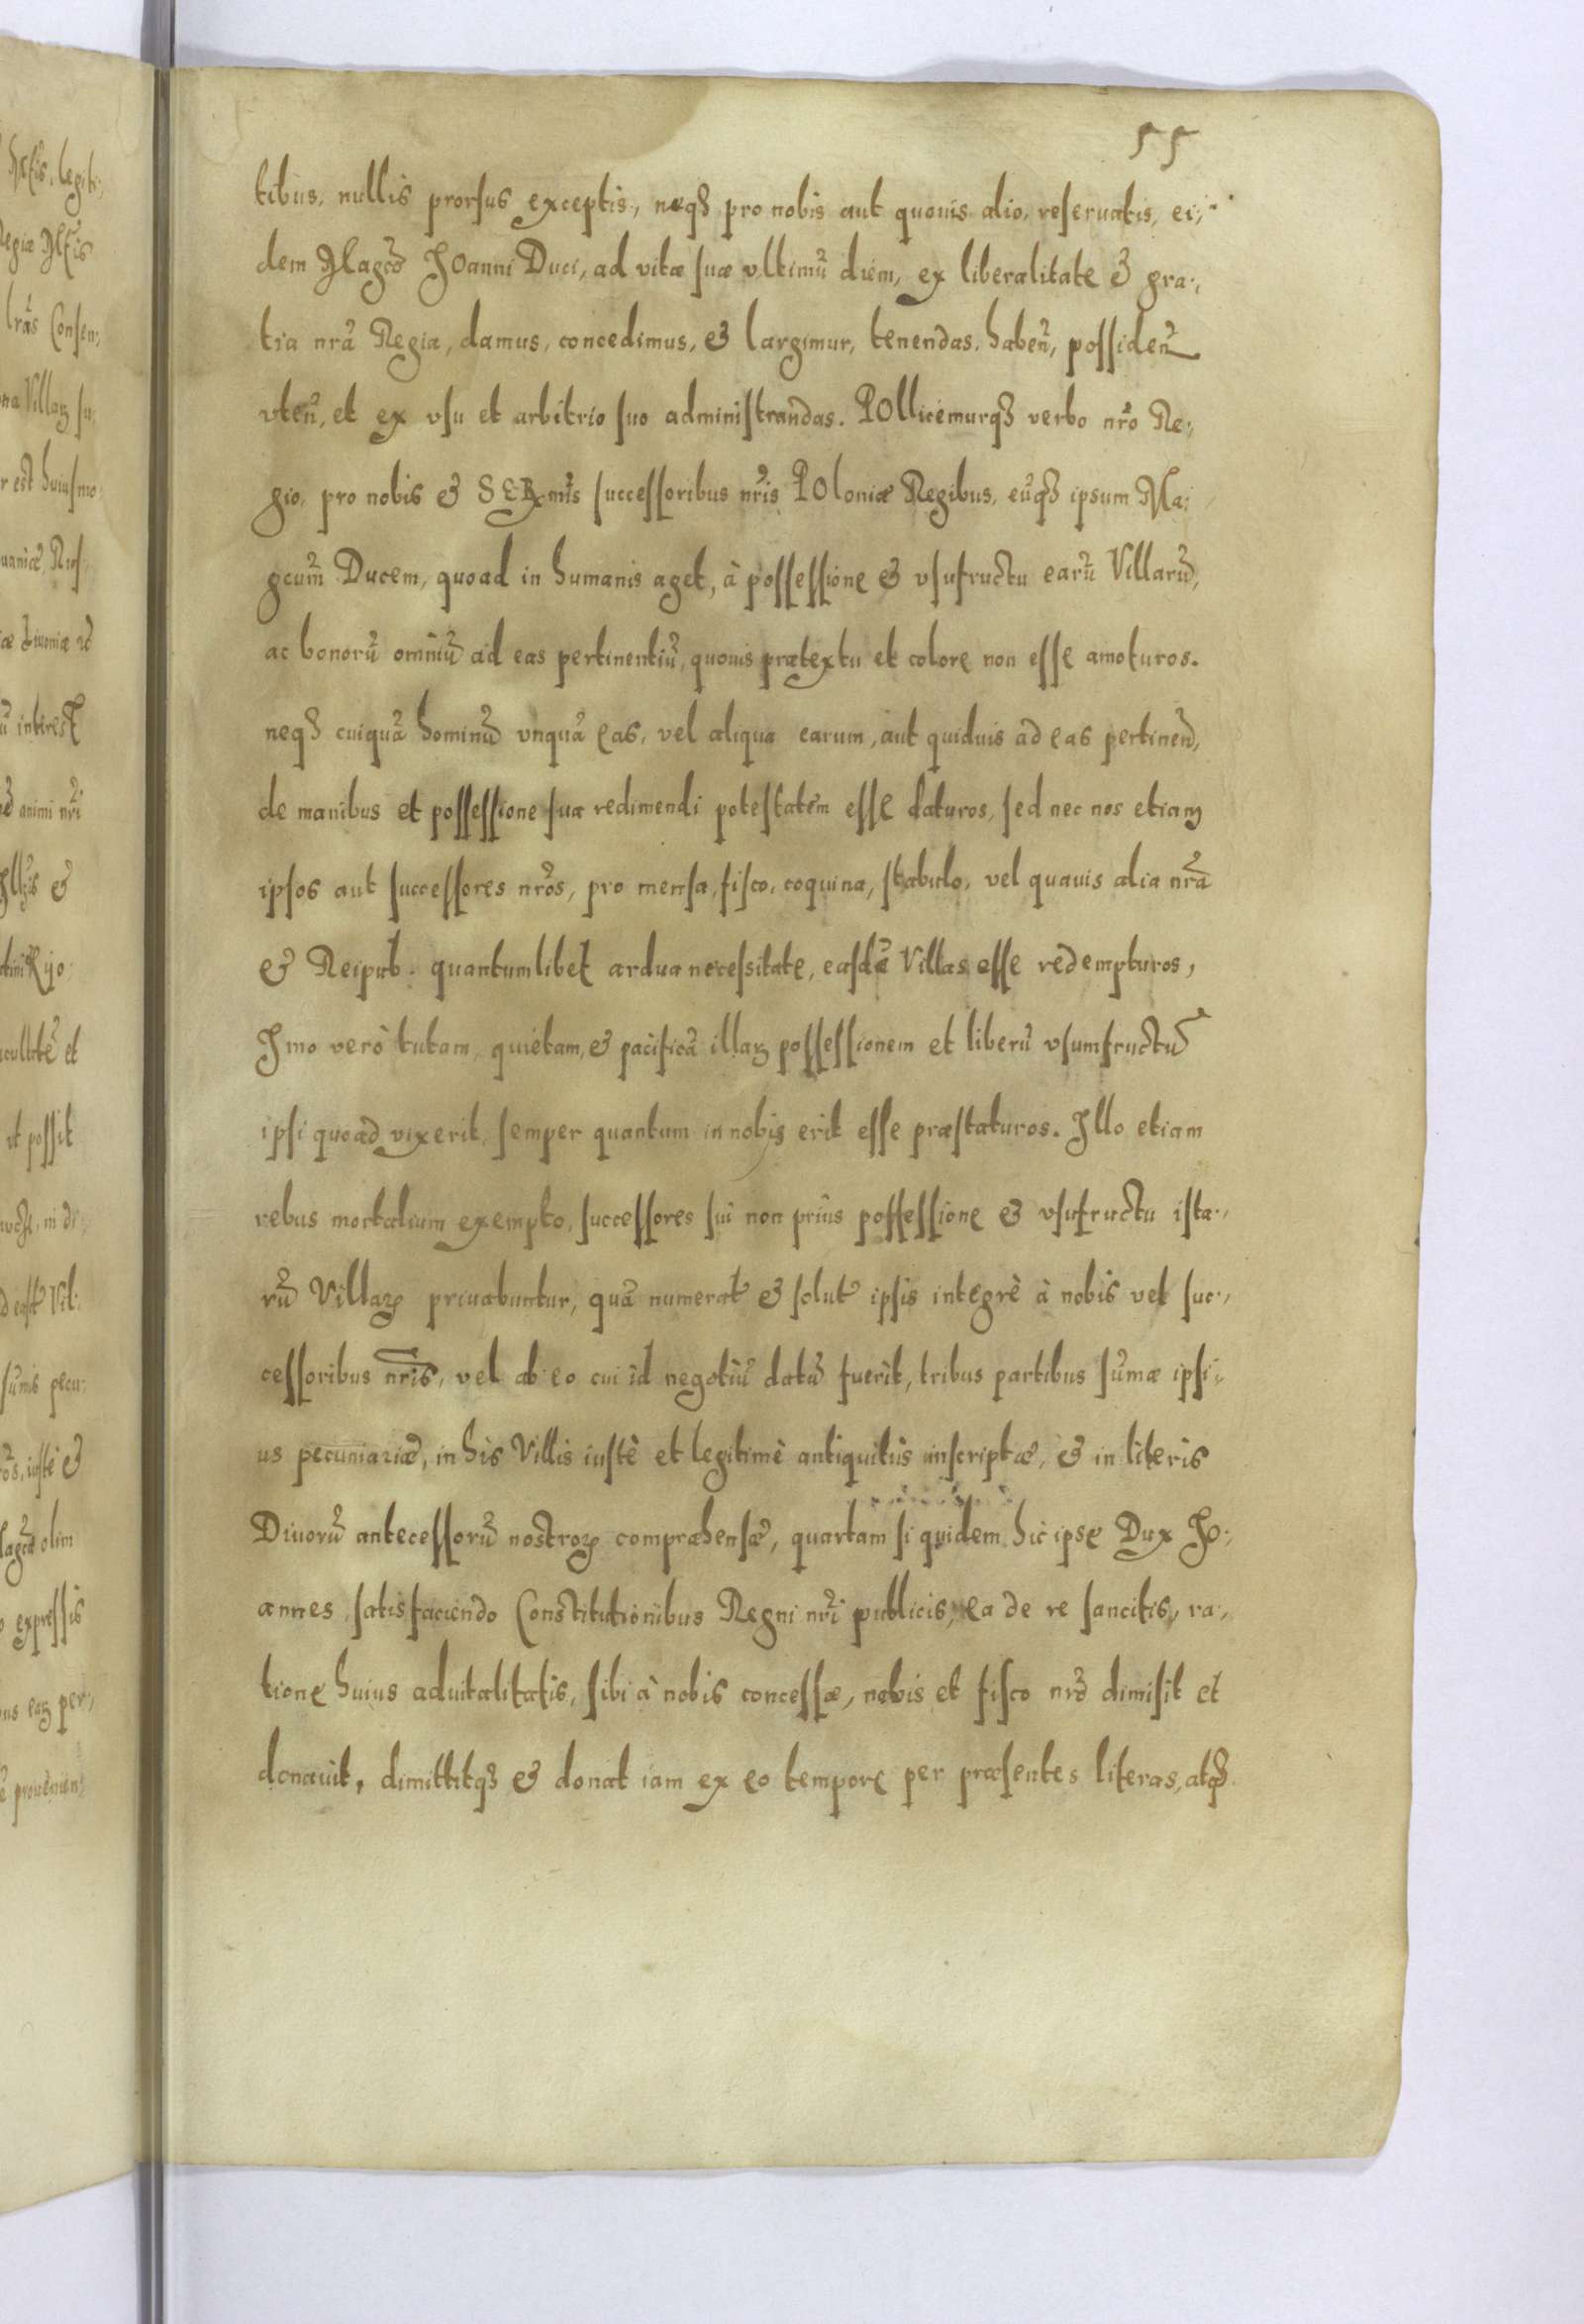 55
tibus, nullis prorsus exceptis, neqȝ pro nobis aut quouis alio, reseruatis, ei,
dem Magco͂ JOanni Duci, ad vitæ suæ vltimũ diem, ex liberalitate & gra,
tia nrã Regia, damus, concedimus, & largimur, tenendas, habeñ, possideñ
vteñ, et ex vsu et arbitrio suo administrandas. POllicemurqȝ verbo nrõ Re,
gio, pro nobis & SERmĩs successoribus nrĩs POloniæ Regibus, eũqȝ ipsum Ma,
gcum̃ Ducem, quoad in humanis aget, à possessione & vsufructu earũ Villarũ,
ac bonorũ omniũ ad eas pertinentiũ, quouis prætextu et colore non esse amoturos.
neqȝ cuiquã hominũ vnquã eas, vel aliqua earum, aut quiduis ad eas pertineñ,
de manibus et possessione sua redimendi potestatem esse daturos, sed nec nos etiam
ipsos aut successores nrõs, pro mensa, fisco, coquina, stabulo, vel quauis alia nrã
& Reipub. quantumlibet ardua necessitate, easdẽ Villas esse redempturos,
Jmo verò tutam, quietam, & pacificã illaꝝ possessionem et liberũ vsumfructũ
ipsi quoad vixerit, semper quantum in nobis erit esse præstaturos. Jllo etiam
rebus mortalium exempto, successores sui non prius possessione & vsufructu ista,
rũ Villaꝝ priuabuntur, quã numerat̃ & solut̃ ipsis integrè à nobis vel suc,
cessoribus nrĩs, vel ab eo cui id negotiũ datũ fuerit, tribus partibus sũmæ ipsi,
us pecuniariæ, in his Villis iustè et legitimè antiquitùs inscriptæ, & in literis
Diuorũ antecessorũ nostroꝝ compræhensæ, quartam si quidem hic ipse Dux Jo,
annes, satisfaciendo Constitutionibus Regni nrĩ publicis, ea de re sancitis, ra,
tione huius aduitalitatis, sibi à nobis concessæ, nobis et fisco nrõ dimisit et
donauit, dimittitqȝ & donat iam ex eo tempore per præsentes literas, atqȝ